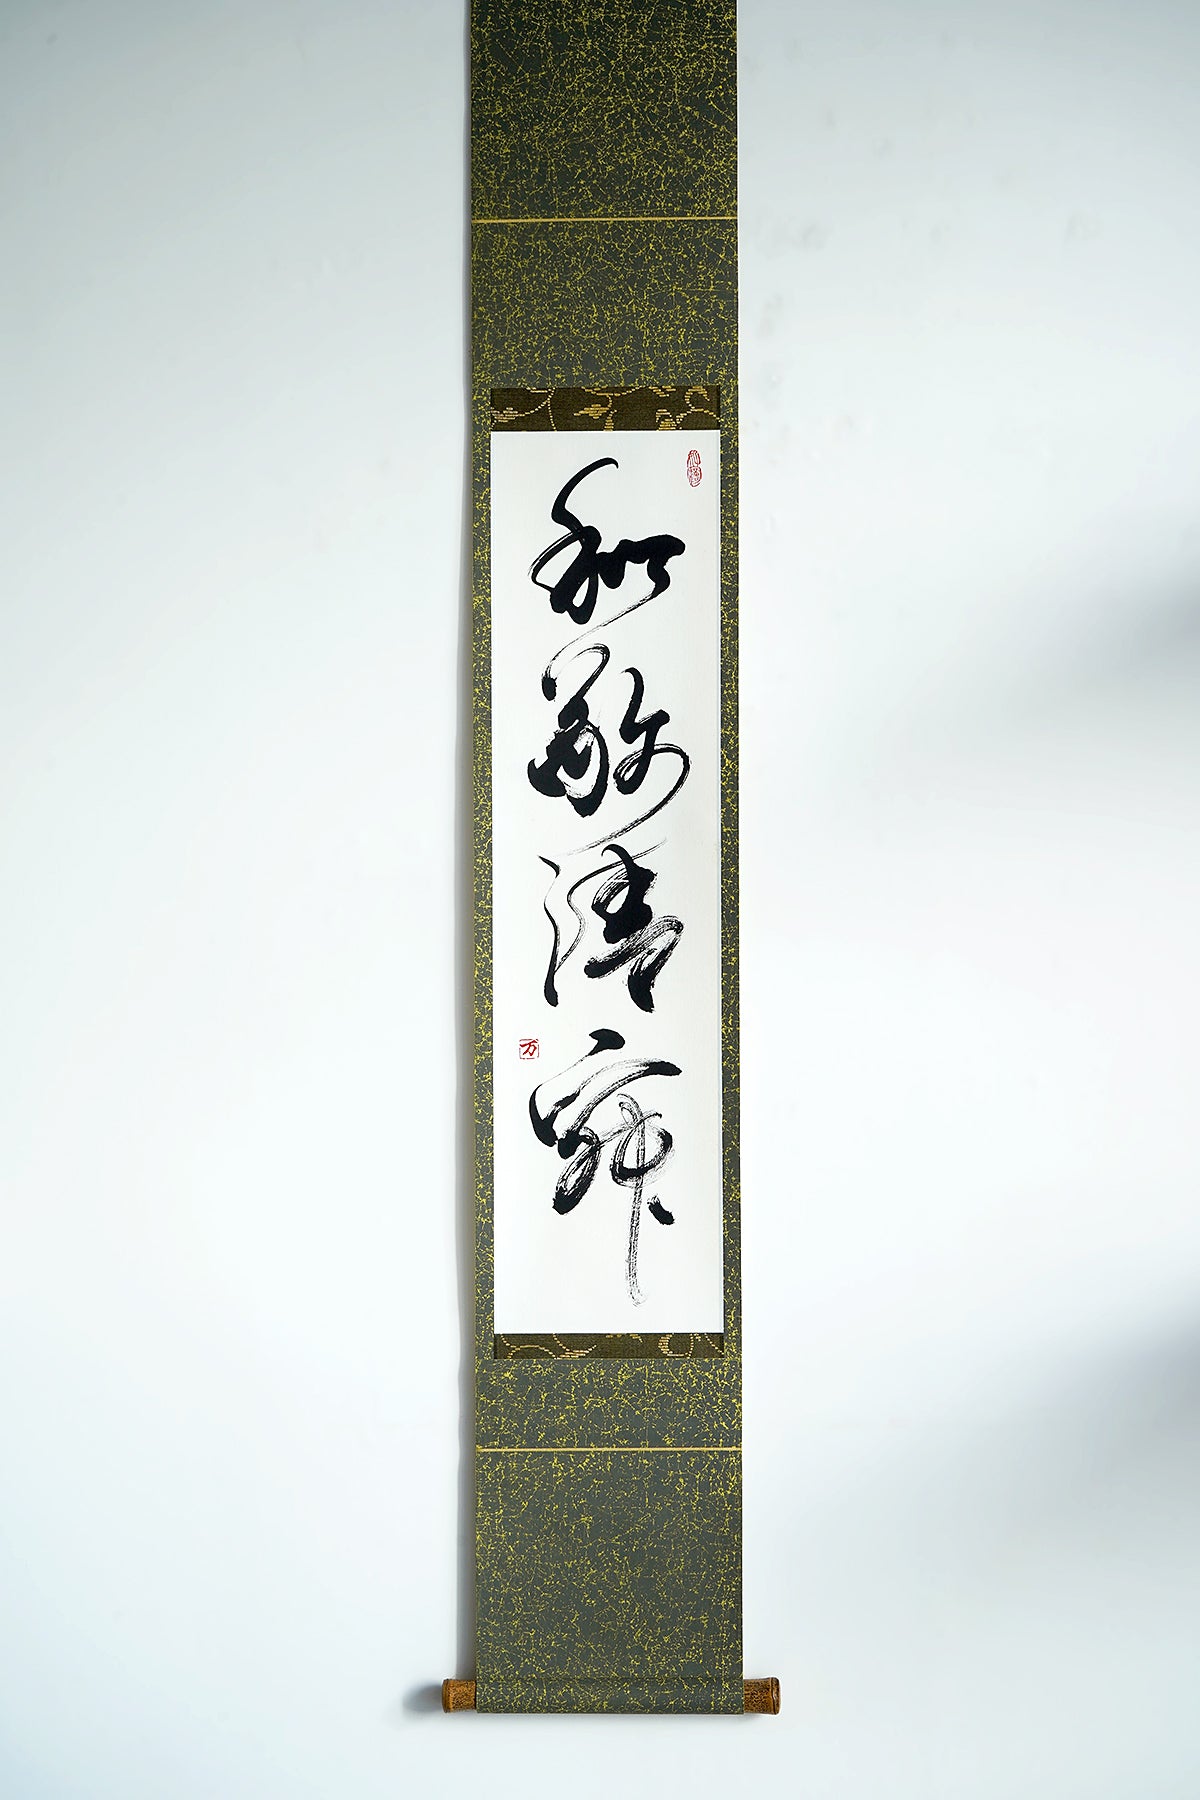 和敬清寂
万